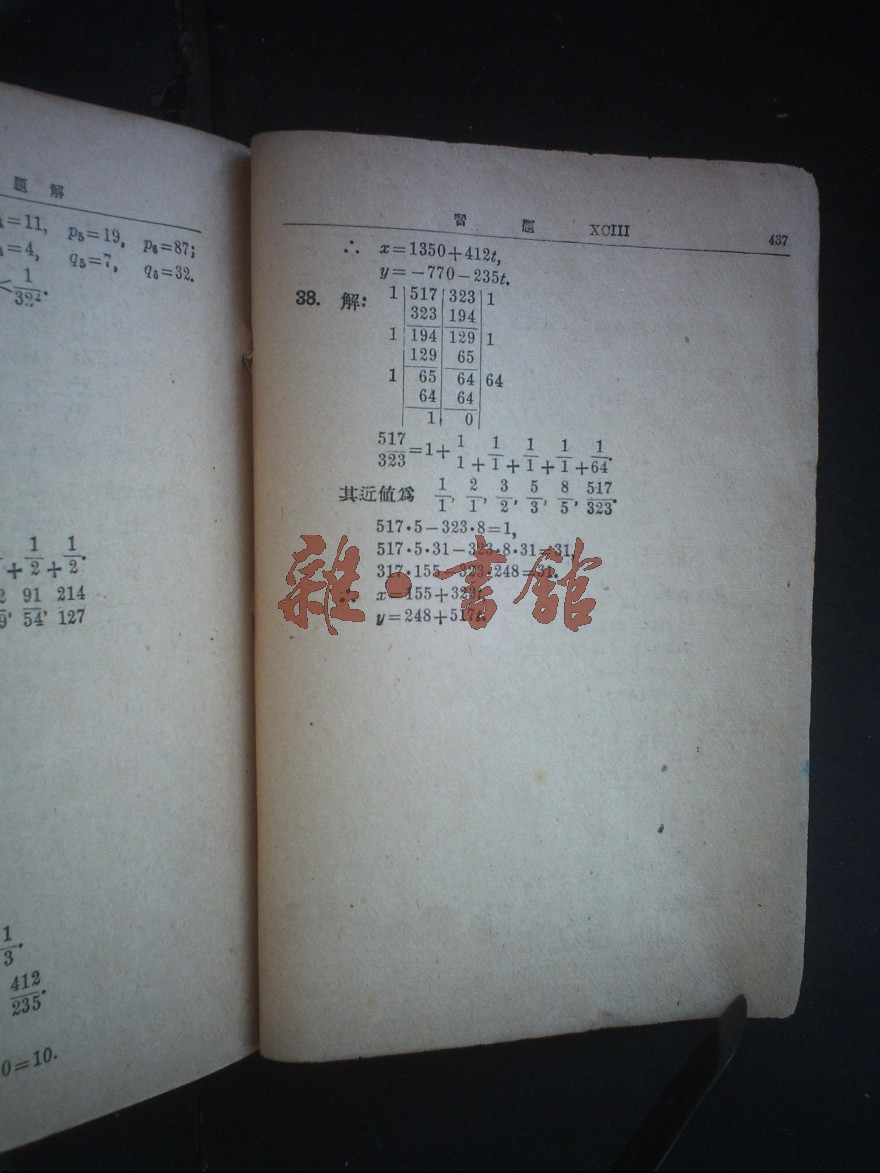 題 解
=11, p₅=19, p₆=87;
=4, q₅=7, q₆=32.
<1/32².
+1/2+1/2.
91/54, 214/127
1/3.
412/235.
0=10.
習 題 XCIII 437
∴ x=1350+412t,
y=-770-235t.
38. 解: 1 517 323 1
323 194
1 194 129 1
129 65
1 65 64 64
64 64
1 0
517/323=1+1/1+1/1+1/1+1/1+1/64.
其近値爲 1/1, 2/1, 3/2, 5/3, 8/5, 517/323.
517·5-323·8=1,
517·5·31-323·8·31=31,
317·155-323·248=31.
∴ x=155+323t
y=248+517t.
雜·書館